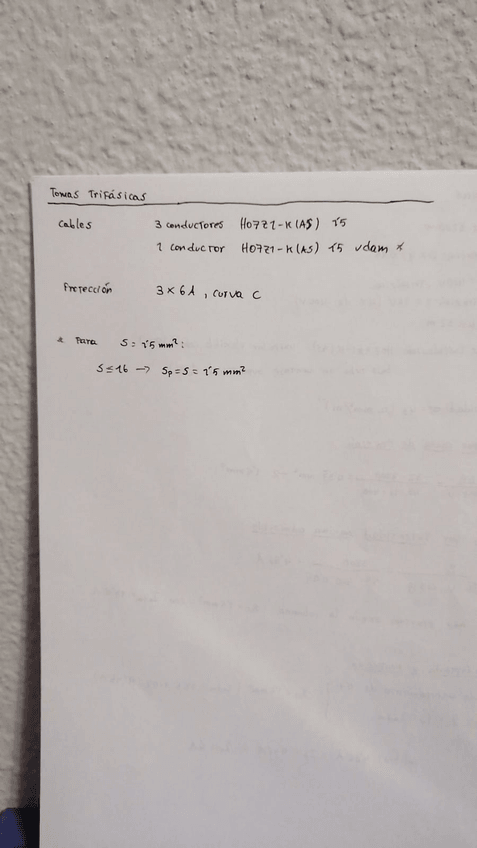 Tomas Trifásicas
Cables 3 conductores H07Z1-K(AS) 1'5
1 conductor H07Z1-K(AS) 1'5 vdam *
Protección 3 x 6A, curva C
* Para S = 1'5 mm²:
S ≤ 16 → Sp = S = 1'5 mm²